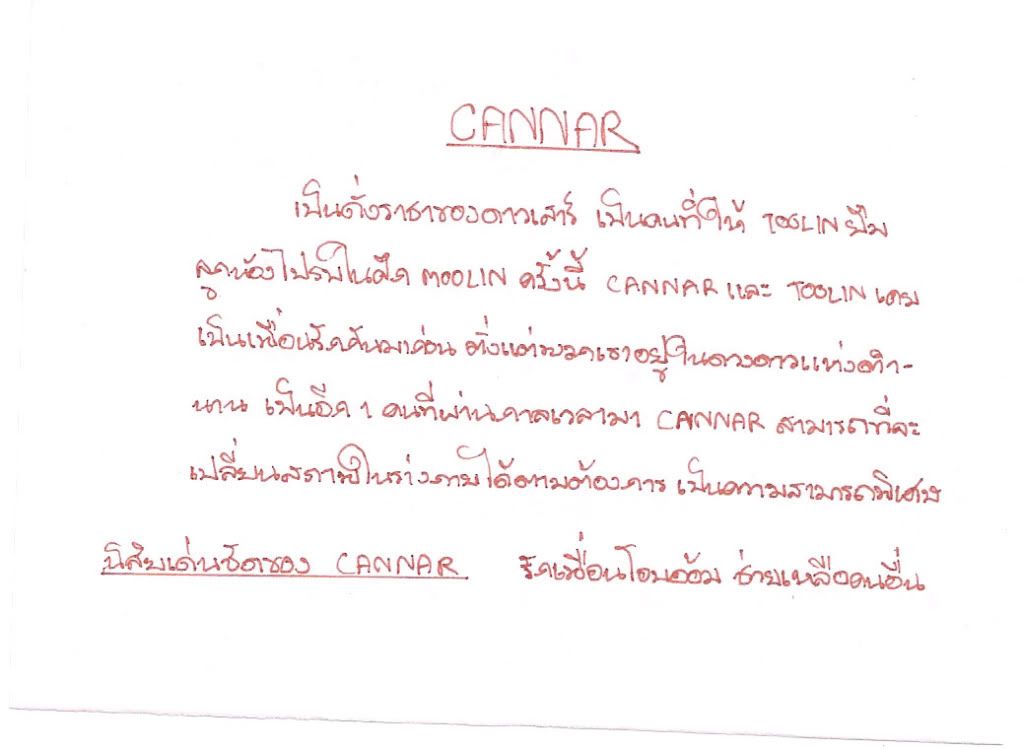 CANNAR
เป็นดั่งราชาของดาวเสาร์ เป็นคนที่ให้ TOOLIN ยืม
ลูกน้องไปรบในศึก MOOLIN ครั้งนี้ CANNAR และ TOOLIN เคย
เป็นเพื่อนรักกันมาก่อน ตั้งแต่พวกเขาอยู่ในดวงดาวแห่งตำ-
นาน เป็นอีก 1 คนที่ผ่านกาลเวลามา CANNAR สามารถที่จะ
เปลี่ยนสภาพในร่างกายได้ตามต้องการ เป็นความสามารถพิเศษ
นิสัยเด่นชัดของ CANNAR รักเพื่อนโอบอ้อม ช่วยเหลือคนอื่น